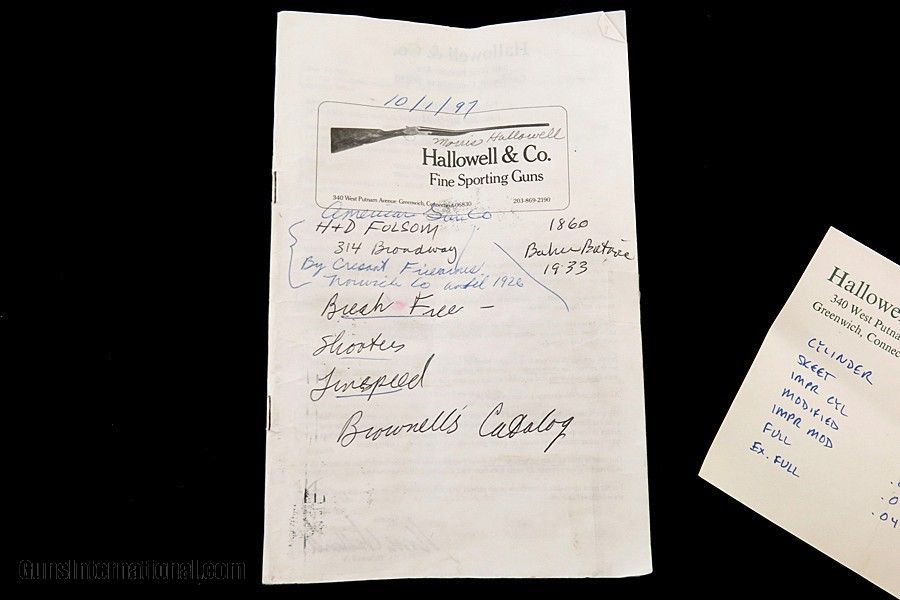 10/1/97
Morris Hallowell
Hallowell & Co.
Fine Sporting Guns
340 West Putnam Avenue Greenwich, Connecticut 06830 203-869-2190
American Gun Co
H+D FOLSOM
314 Broadway
By Cresant Firearms
Norwich Co until 1926
1860
Baker Batavia
1933
Break Free -
Shooters
Linspeed
Brownell's Catalog
Hallowe
340 West Putna
Greenwich, Connec
CYLINDER
SKEET
IMPR CYL
MODIFIED
IMPR MOD
FULL
EX. FULL
.0
.04
GunsInternational.com